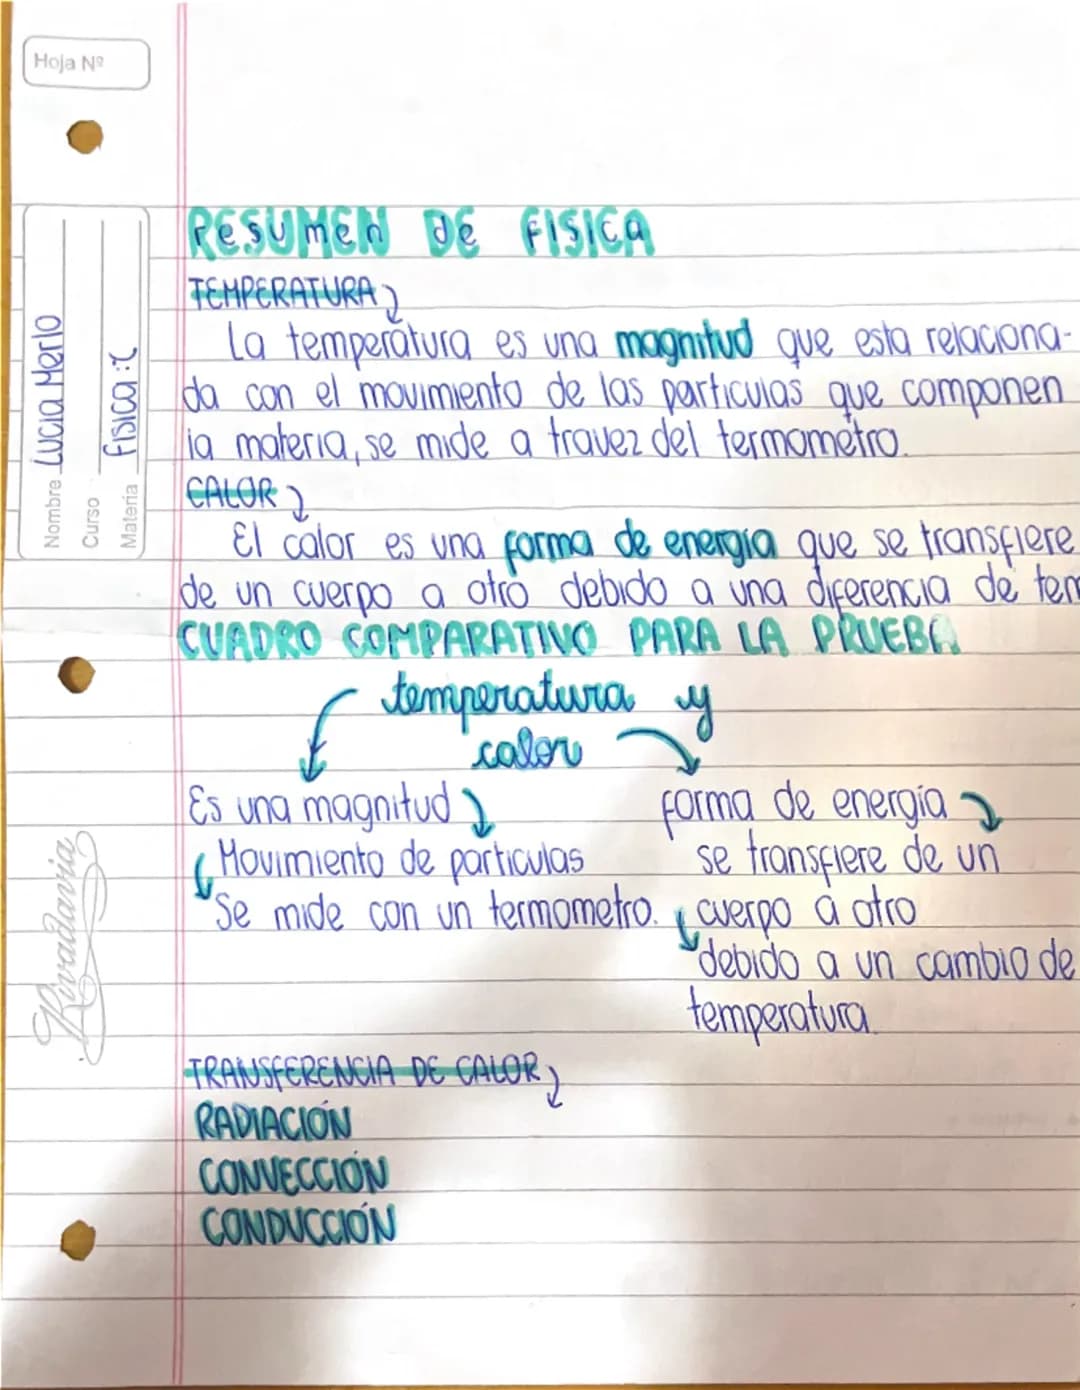 Hoja Nº
Nombre Lucia Merlo
Curso
Materia fisica :c
RESUMEN DE FISICA
TEMPERATURA
La temperatura es una magnitud que esta relaciona-
da con el movimiento de las particulas que componen
la materia, se mide a travez del termometro.
CALOR
El calor es una forma de energía que se transfiere
de un cuerpo a otro debido a una diferencia de tem
CUADRO COMPARATIVO PARA LA PRUEBA
temperatura y
calor
Es una magnitud
forma de energía
Movimiento de particulas
se transfiere de un
Se mide con un termometro.
cuerpo a otro
debido a un cambio de
temperatura
Rivadavia
TRANSFERENCIA DE CALOR
RADIACIÓN
CONVECCIÓN
CONDUCCIÓN